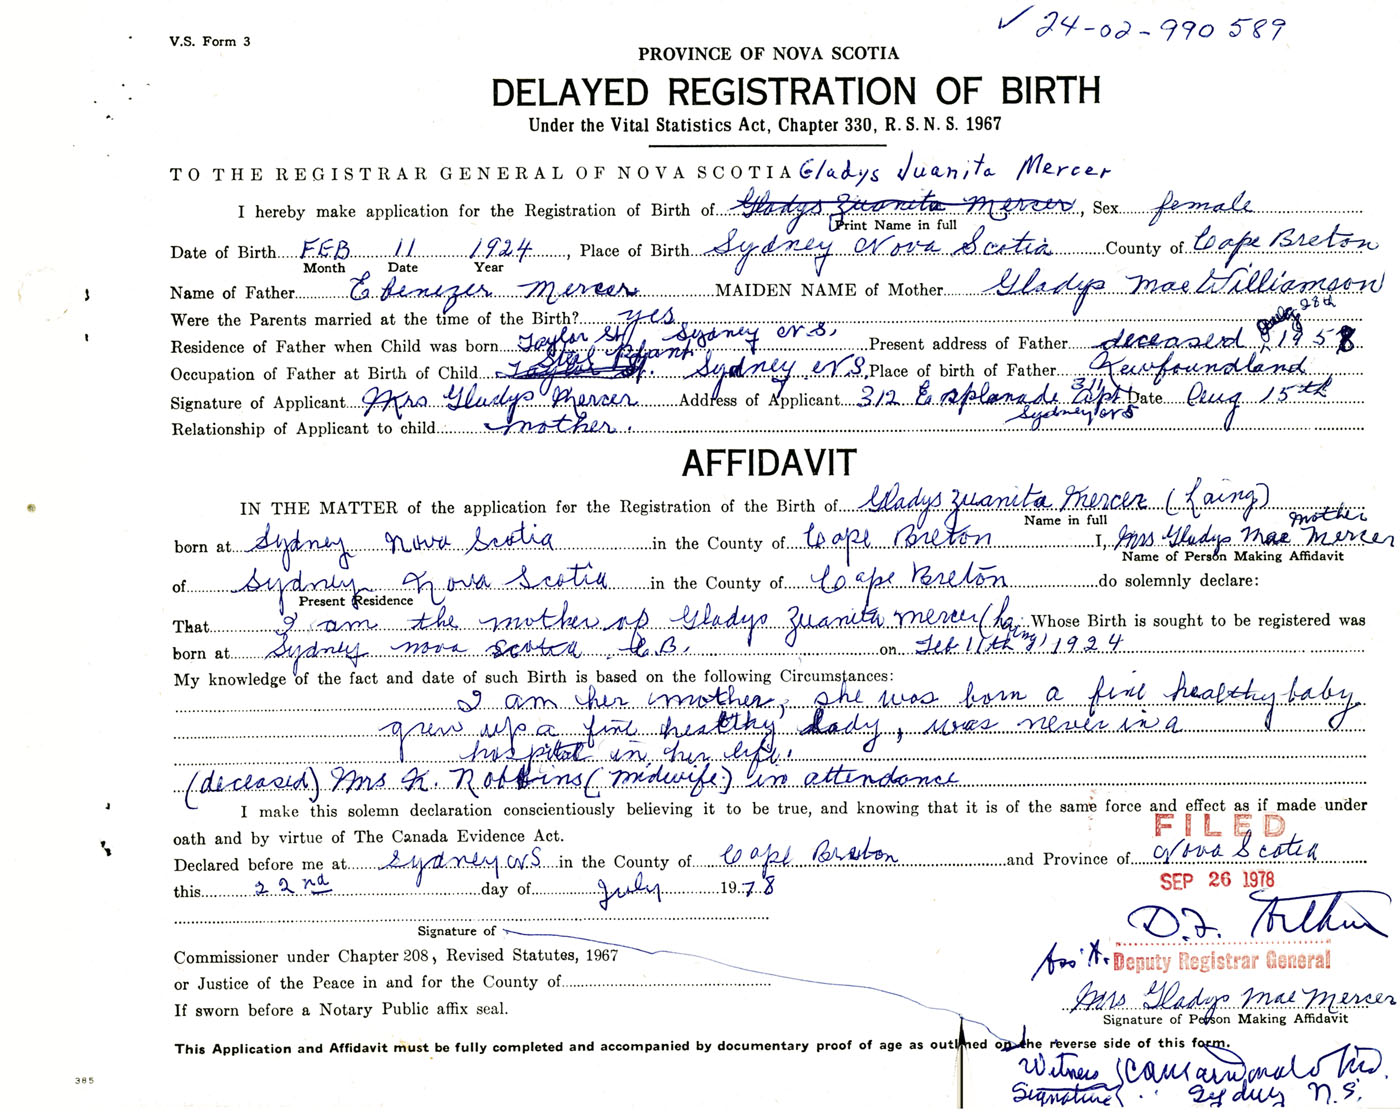 ✓ 24-02-990 589
V.S. Form 3
PROVINCE OF NOVA SCOTIA
DELAYED REGISTRATION OF BIRTH
Under the Vital Statistics Act, Chapter 330, R. S. N. S. 1967
TO THE REGISTRAR GENERAL OF NOVA SCOTIA Gladys Juanita Mercer
I hereby make application for the Registration of Birth of Gladys Zuanita Mercer, Sex female
Print Name in full
Date of Birth FEB 11 1924, Place of Birth Sydney Nova Scotia County of Cape Breton
Month Date Year
Name of Father Ebenezer Mercer MAIDEN NAME of Mother Gladys Mae Williamson
Were the Parents married at the time of the Birth? yes
Residence of Father when Child was born Taylor St Sydney N.S. Present address of Father deceased July 28th 1958
Steel Plant
Occupation of Father at Birth of Child Taylor St. Sydney N.S. Place of birth of Father Newfoundland
Signature of Applicant Mrs Gladys Mercer Address of Applicant 312 Esplanade Apt 311 Date Aug 15th
Sydney NS
Relationship of Applicant to child mother.
AFFIDAVIT
IN THE MATTER of the application for the Registration of the Birth of Gladys Zuanita Mercer (Laing)
Name in full mother
born at Sydney Nova Scotia in the County of Cape Breton I, Mrs Gladys Mae Mercer
Name of Person Making Affidavit
of Sydney Nova Scotia in the County of Cape Breton do solemnly declare:
Present Residence
That I am the mother of Gladys Zuanita Mercer (Laing) Whose Birth is sought to be registered was
born at Sydney Nova Scotia C.B. on Feb 11th 1924
My knowledge of the fact and date of such Birth is based on the following Circumstances:
I am her mother, she was born a fine healthy baby
grew up a fine healthy lady, was never in a
hospital in her life.
(deceased) Mrs K. Robbins (midwife) in attendance
I make this solemn declaration conscientiously believing it to be true, and knowing that it is of the same force and effect as if made under
oath and by virtue of The Canada Evidence Act.
FILED
Declared before me at Sydney NS in the County of Cape Breton and Province of Nova Scotia
this 22nd day of July 1978
SEP 26 1978
D.F. Arthur
Signature of
Commissioner under Chapter 208, Revised Statutes, 1967
Ass't. Deputy Registrar General
or Justice of the Peace in and for the County of
Mrs Gladys Mae Mercer
If sworn before a Notary Public affix seal.
Signature of Person Making Affidavit
This Application and Affidavit must be fully completed and accompanied by documentary proof of age as outlined on the reverse side of this form.
Witness
Signature Sydney N.S.
385